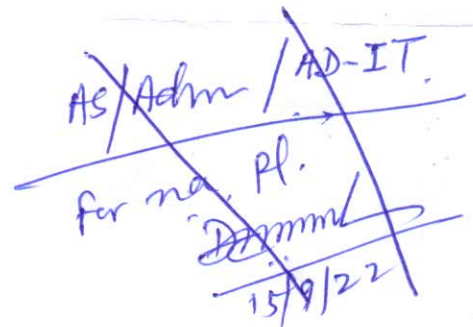 AS/Adm / AD-IT.
For na, Pl.
15/9/22